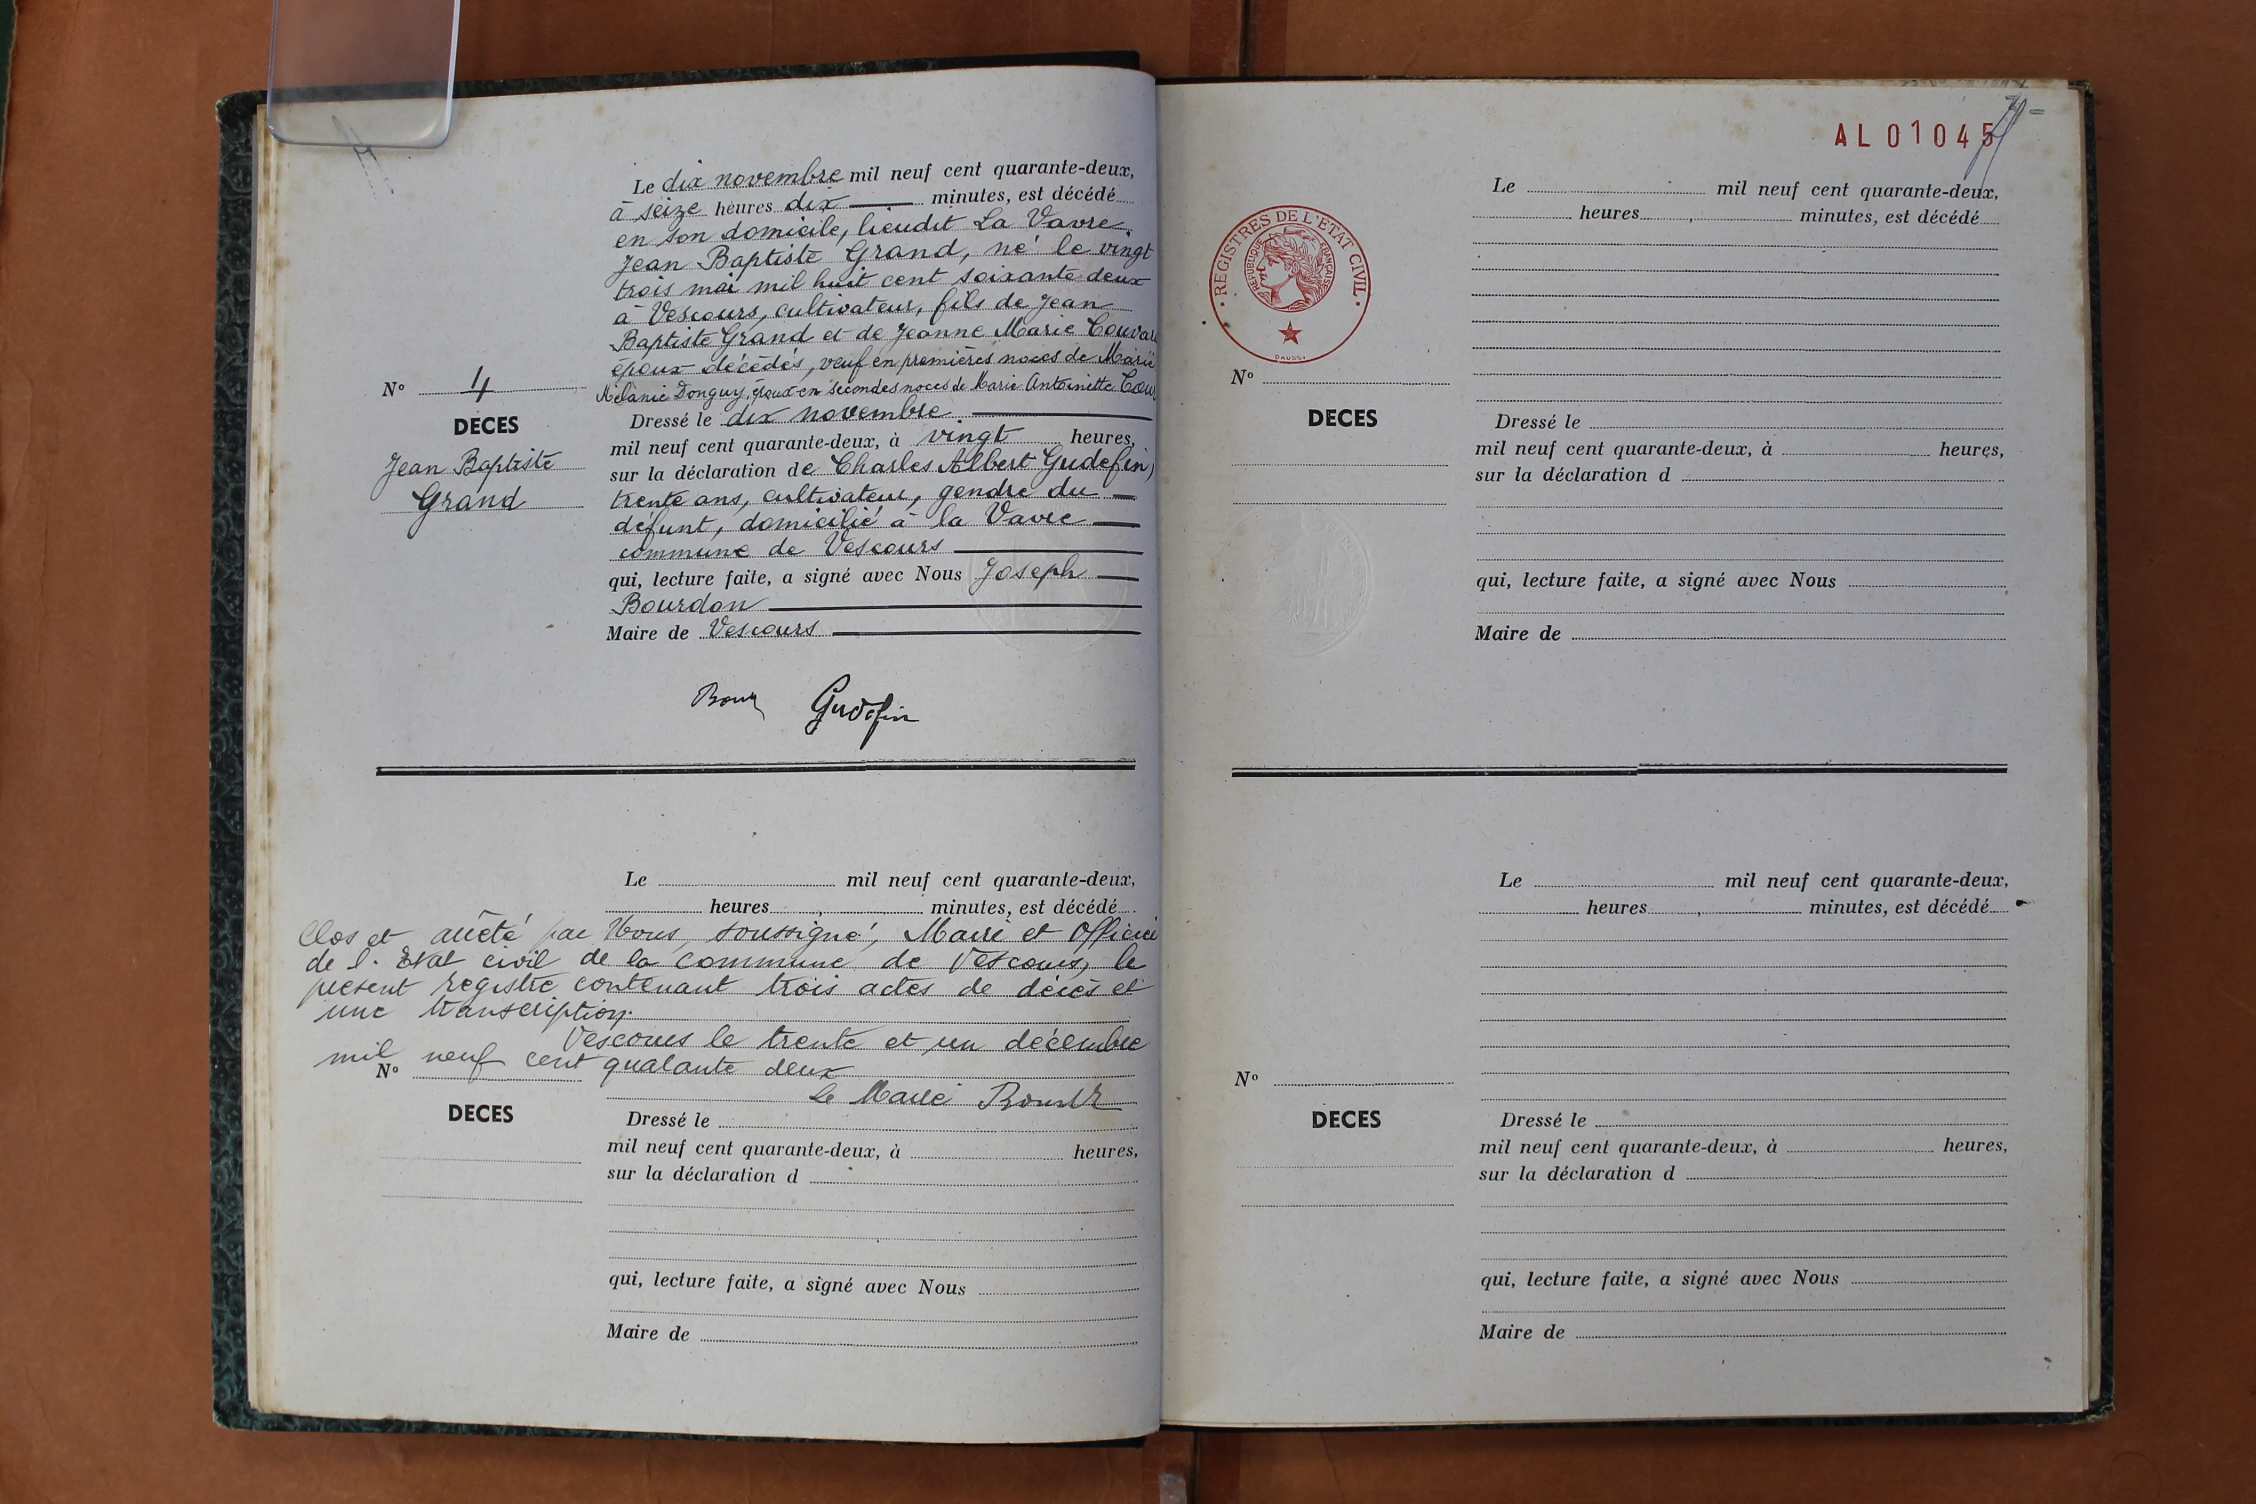 Le dix novembre mil neuf cent quarante-deux,
à seize heures dix minutes, est décédé
en son domicile, lieudit La Vavre,
Jean Baptiste Grand, né le vingt
trois mai mil huit cent soixante deux
à Vescours, cultivateur, fils de Jean
Baptiste Grand et de Jeanne Marie
époux décédés, veuf en premières noces de Marie
Mélanie Donguy, époux en secondes noces de Marie Antoinette
N° 4
DECES
Jean Baptiste
Grand
Dressé le dix novembre
mil neuf cent quarante-deux, à vingt heures,
sur la déclaration de Charles Albert Gudefin,
trente ans, cultivateur, gendre du
défunt, domicilié à la Vavre
commune de Vescours
qui, lecture faite, a signé avec Nous Joseph
Bourdon
Maire de Vescours
Gudefin
Le mil neuf cent quarante-deux,
heures, minutes, est décédé
Clos et arrêté par Nous, soussigné, Maire et Officier
de l'Etat civil de la commune de Vescours, le
présent registre contenant trois actes de décès et
une transcription.
Vescours le trente et un décembre
mil neuf cent quarante deux
Le Maire
N°
DECES
Dressé le
mil neuf cent quarante-deux, à heures,
sur la déclaration d
qui, lecture faite, a signé avec Nous
Maire de
AL01045
REGISTRES DE L'ETAT CIVIL
REPUBLIQUE FRANÇAISE
Le mil neuf cent quarante-deux,
heures, minutes, est décédé
N°
DECES
Dressé le
mil neuf cent quarante-deux, à heures,
sur la déclaration d
qui, lecture faite, a signé avec Nous
Maire de
Le mil neuf cent quarante-deux,
heures, minutes, est décédé
N°
DECES
Dressé le
mil neuf cent quarante-deux, à heures,
sur la déclaration d
qui, lecture faite, a signé avec Nous
Maire de